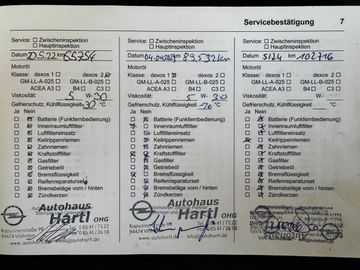 Servicebestätigung 7
Service: Zwischeninspektion
Hauptinspektion
Datum 23.5.22 km 65754
Motoröl
Klasse: dexos 1 dexos 2
GM-LL-A-025 GM-LL-B-025
ACEA A3 B4 C3
Viskosität: 5 W- 30
Gefrierschutz, Kühlflüssigkeit
Ja Nein
Batterie (Funkfernbedienung)
Innenraumluftfilter
Luftfiltereinsatz
Keilrippenriemen
Zahnriemen
Kraftstofffilter
Gasfilter
Getriebeöl
Bremsflüssigkeit
Reifenreparaturset
Bremsbeläge vorn / hinten
Zündkerzen
Autohaus
Härtl OHG
94474 Vilshofen
www.autohaertl.de
Service: Zwischeninspektion
Hauptinspektion
Datum km 89.532 km
Motoröl
Klasse: dexos 1 dexos 2
GM-LL-A-025 GM-LL-B-025
ACEA A3 B4 C3
Viskosität: 5 W- 30
Gefrierschutz, Kühlflüssigkeit °C
Ja Nein
Batterie (Funkfernbedienung)
Innenraumluftfilter
Luftfiltereinsatz
Keilrippenriemen
Zahnriemen
Kraftstofffilter
Gasfilter
Getriebeöl
Bremsflüssigkeit
Reifenreparaturset
Bremsbeläge vorn / hinten
Zündkerzen
Autohaus
Härtl OHG
94474 Vilshofen
www.autohaertl.de
Service: Zwischeninspektion
Hauptinspektion
Datum 5/24 km 102716
Motoröl
Klasse: dexos 1 dexos 2
GM-LL-A-025 GM-LL-B-025
ACEA A3 B4 C3
Viskosität: W-
Gefrierschutz, Kühlflüssigkeit °C
Ja Nein
Batterie (Funkfernbedienung)
Innenraumluftfilter
Luftfiltereinsatz
Keilrippenriemen
Zahnriemen
Kraftstofffilter
Gasfilter
Getriebeöl
Bremsflüssigkeit
Reifenreparaturset
Bremsbeläge vorn / hinten
Zündkerzen